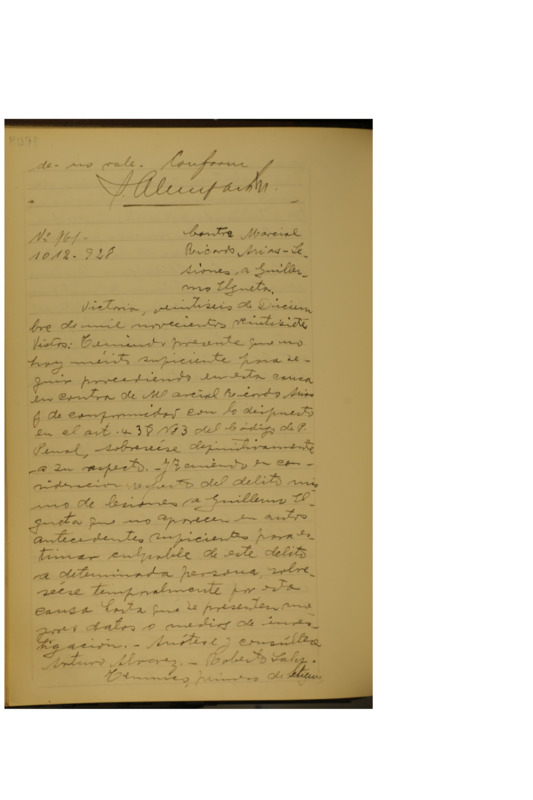 de- no vale. Conforme
Nº 961.-
10.12.-928
Contra Marcial
Ricardo Arias-Le-
siones a Guiller-
mo Ugueta.
Victoria, veintiseis de Diciem
bre de mil novecientos veintisiete
Vistos: Teniendo presente que no
hay mérito suficiente para se-
guir procediendo en esta causa
en contra de Marcial Ricardo Arias
y de conformidad con lo dispuesto
en el art. 438 Nº3 del Código de P.
Penal, sobreséese definitivamente
a su respecto.- Y teniendo en con-
sideracion respecto del delito mis
mo de lesiones a Guillermo U-
gueta que no aparecen en autos
antecedentes suficientes para es-
timar culpable de este delito
a determinada persona, sobre-
séese temporalmente por esta
causa hasta que se presenten me-
jores datos o medios de inves-
tigación.- Anótese y consúltese
Arturo Alvarez.- Roberto
Temuco, primero de